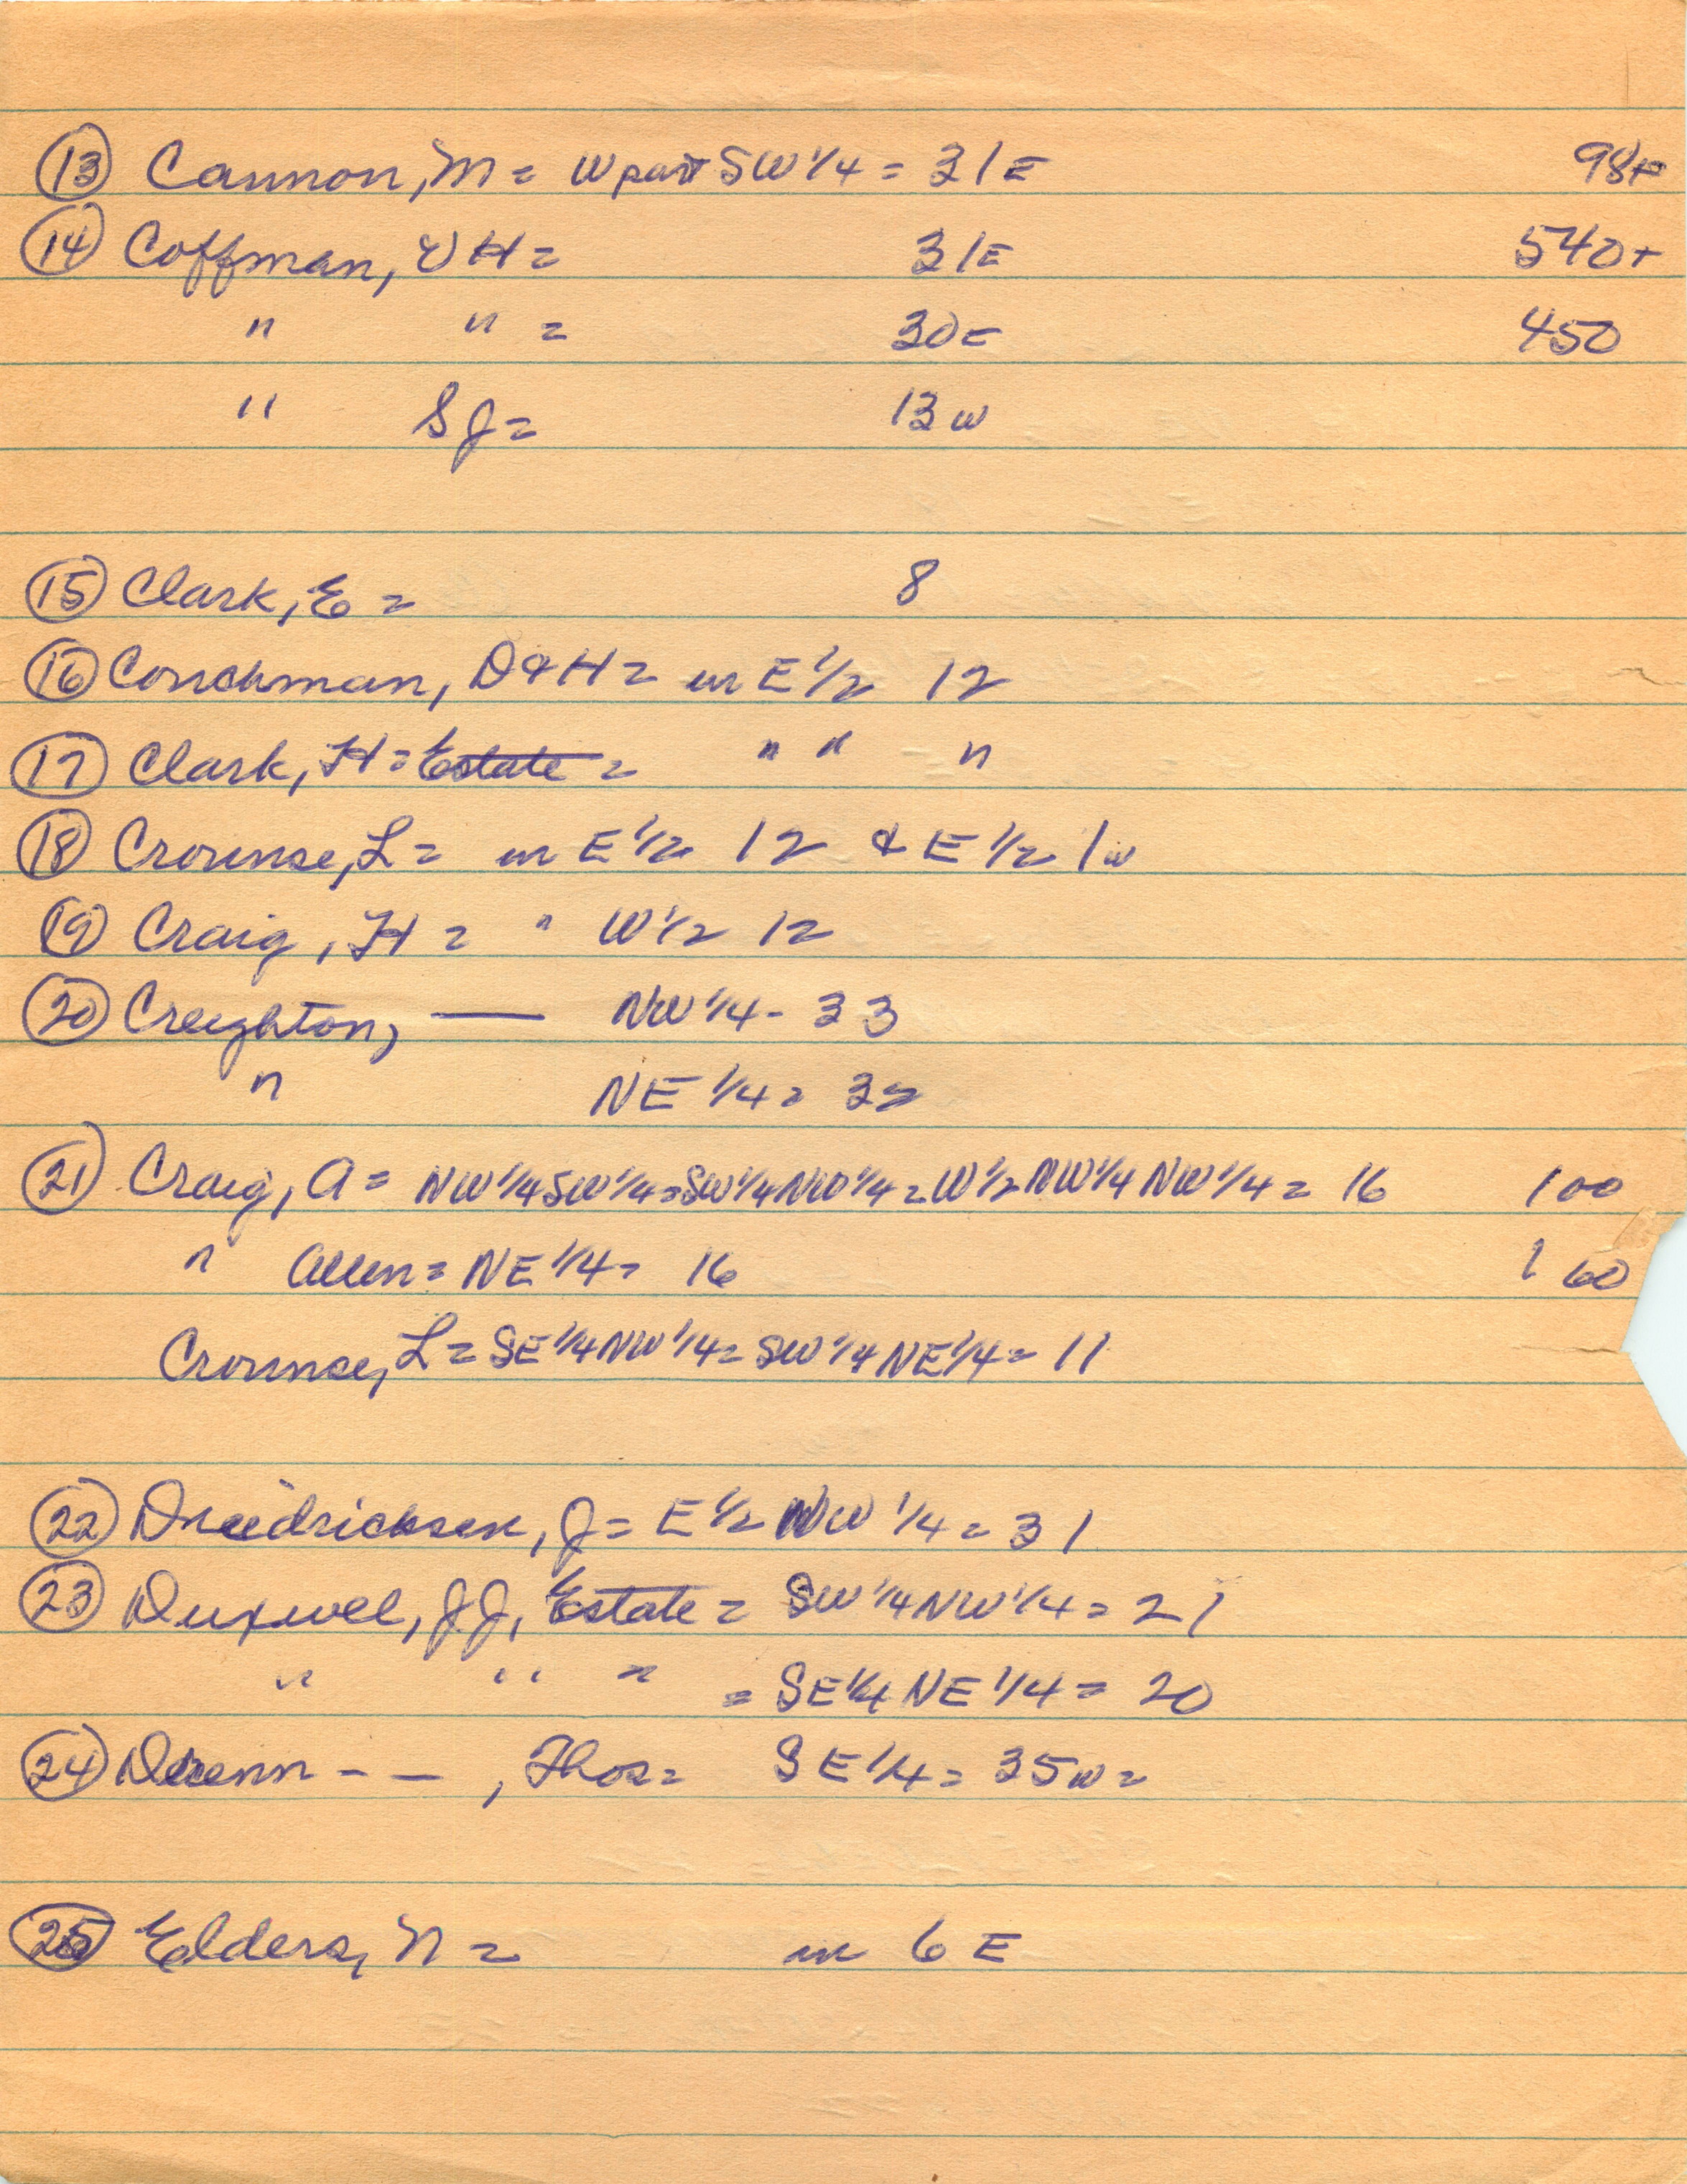 (13) Cannon, M = W part SW 1/4 = 31E 98+
(14) Coffman, VH = 31E 540+
" " = 30E 450
" SJ = 13w
(15) Clark, E = 8
(16) Conchman, D & H = in E 1/2 12
(17) Clark, H = Estate = " " "
(18) Crounse, L = in E 1/2 12 & E 1/2 1w
(19) Craig, H = " W 1/2 12
(20) Creighton, — NW 1/4 - 33
" NE 1/4 =
(21) Craig, A = NW 1/4 SW 1/4 = SW 1/4 NW 1/4 = W 1/2 NW 1/4 NW 1/4 = 16 100
" Allen = NE 1/4 = 16 160
Crounse, L = SE 1/4 NW 1/4 = SW 1/4 NE 1/4 = 11
(22) J = E 1/2 NW 1/4 = 31
(23) Duxwel, JJ, Estate = SW 1/4 NW 1/4 = 21
" " " = SE 1/4 NE 1/4 = 20
(24) - - , Thos = SE 1/4 = 35w =
(25) Elders, N = in 6 E